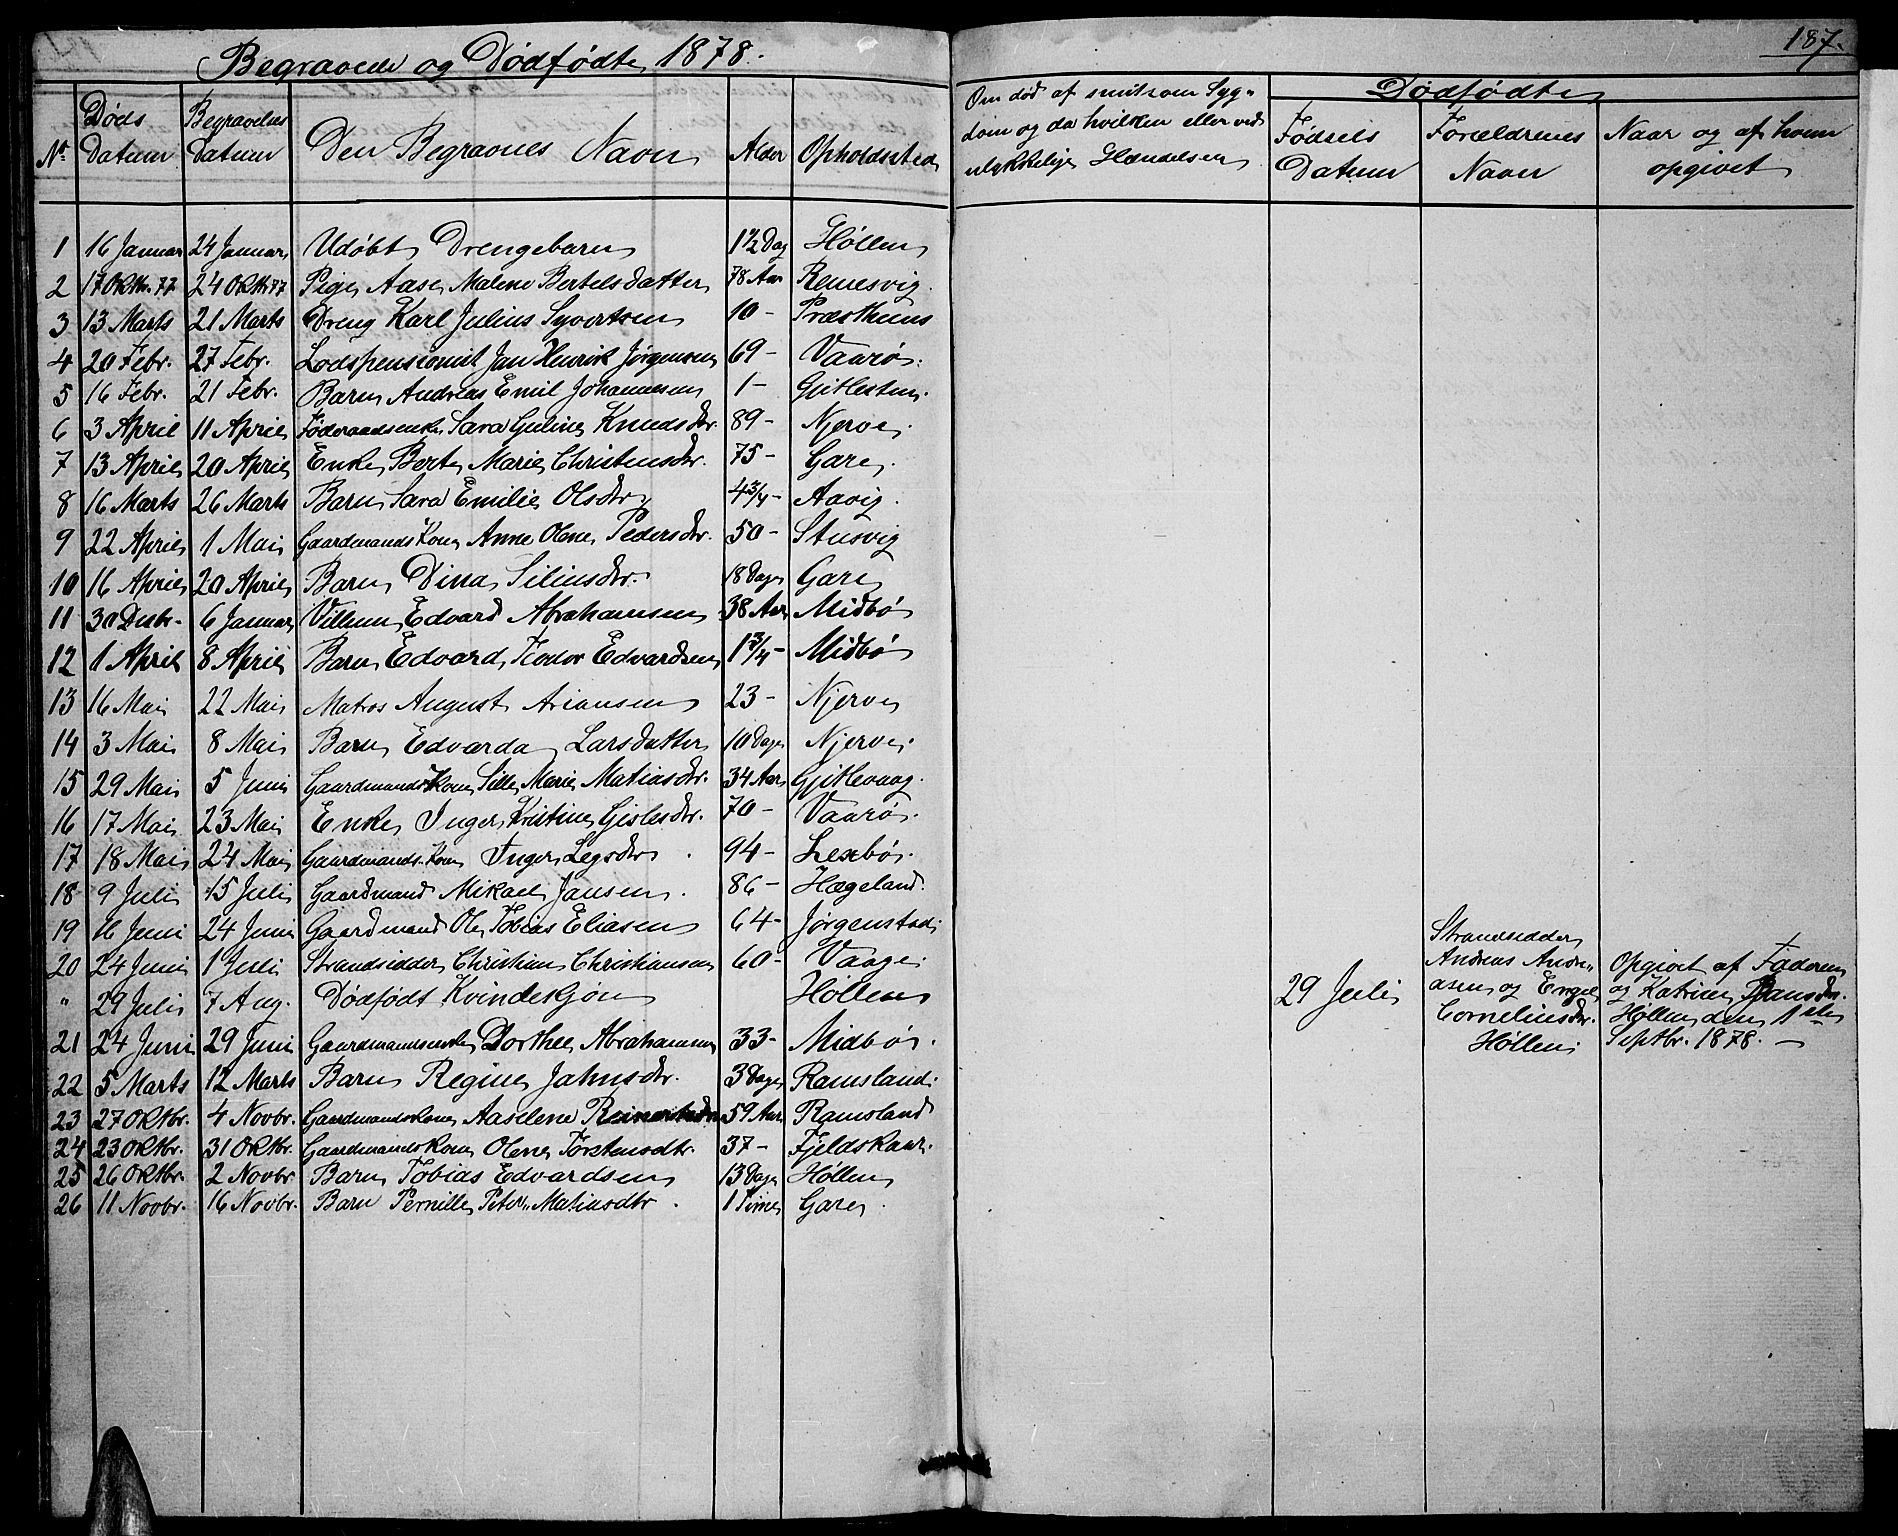 Begravede og Dødfødte 1878.
187.
Nr. Døds Datum Begravelses Datum Den Begravnes Navn Alder Opholdssted Om død af smitsom Syg- dom og da hvilken eller ved ulykkelige Hændelser Dødfødte Fødsels Datum Forældrenes Navn Naar og af hvem opgivet
1 16 Januar 24 Januar Udøbt Drengebarn 1½ Dag Høllen
2 17 Oktbr. 77 24 Oktbr 77 Pige Aase Malene Bertelsdatter 78 Aar Remesvig.
3 13 Marts 21 Marts Dreng Karl Julius Syvertsen 10 - Præsthuus
4 20 Febr. 27 Febr. Lodspensionist Jan Henrik Jørgensen 69 - Vaarø.
5 16 Febr. 21 Febr. Barn Andreas Emil Johannesen 1 -
6 3 April 11 April Føderaadsenke Sara Guline Knudsdtr. 89 - Njerve.
7 13 April 20 April Enke Berte Marie Christensdtr. 75 - Gare.
8 16 Marts 26 Marts Barn Sara Emilie Olsdtr. 4¾ - Aavig.
9 22 April 1 Mai Gaardmands Kone Anne Olene Pedersdtr. 50 - Stusvig
10 16 April 20 April Barn Dina Siliusdtr. 18 Dage Gare
11 30 Desbr. 6 Januar Villum Edvard Abrahamsen 38 Aar Midbø
12 1 April 8 April Barn Edvard Teodor Edvardsen 1¾ - Midbø
13 16 Mai 22 Mai Matros August Ariansen 23 - Njerve
14 3 Mai 8 Mai Barn Edvarda Larsdatter 10 Dage Njerve.
15 29 Mai 5 Juni Gaardmands Kone Sille Marie Matiasdtr. 34 Aar Gjitlevaag.
16 17 Mai 23 Mai Enke Inger Kristine Gislesdtr. 70 - Vaarø.
17 18 Mai 24 Mai Gaardmands Kone Inger 94 -
18 9 Juli 15 Juli Gaardmand Mikael Jansen. 86 - Hægeland.
19 16 Juni 24 Juni Gaardmand Ole Tobias Eliasen 64 - Jørgenstad.
20 24 Juni 1 Juli Strandsidder Christian Christiansen 60 - Vaage.
" 29 Juli 7 Aug. Dødfødt Kvindekjøn Høllen 29 Juli
Strandsidder
Andreas Andre-
asen og Engel
Corneliusdtr.
Høllen.
Opgivet af Faderen
og Katrine Hansdtr.
Høllen den 1ste
Septbr. 1878. —
21 24 Juni 29 Juni Dorthee Abrahamsen 33 - Midbø.
22 5 Marts 12 Marts Barn Regine Jahnsdtr. 3 Dage Ramsland.
23 27 Oktbr. 4 Novbr. Gaardmandskone Aaslene 59 Aar Ramsland
24 23 Oktbr. 31 Oktbr. Gaardmands Kone Olene Torstensdtr. 37 - Fjeldskaar.
25 26 Oktbr. 2 Novbr Barn Tobias Edvardsen 13 Dage Høllen
26 11 Novbr. 16 Novbr. Barn Pernille Matiasdtr. 1 Time Gare.